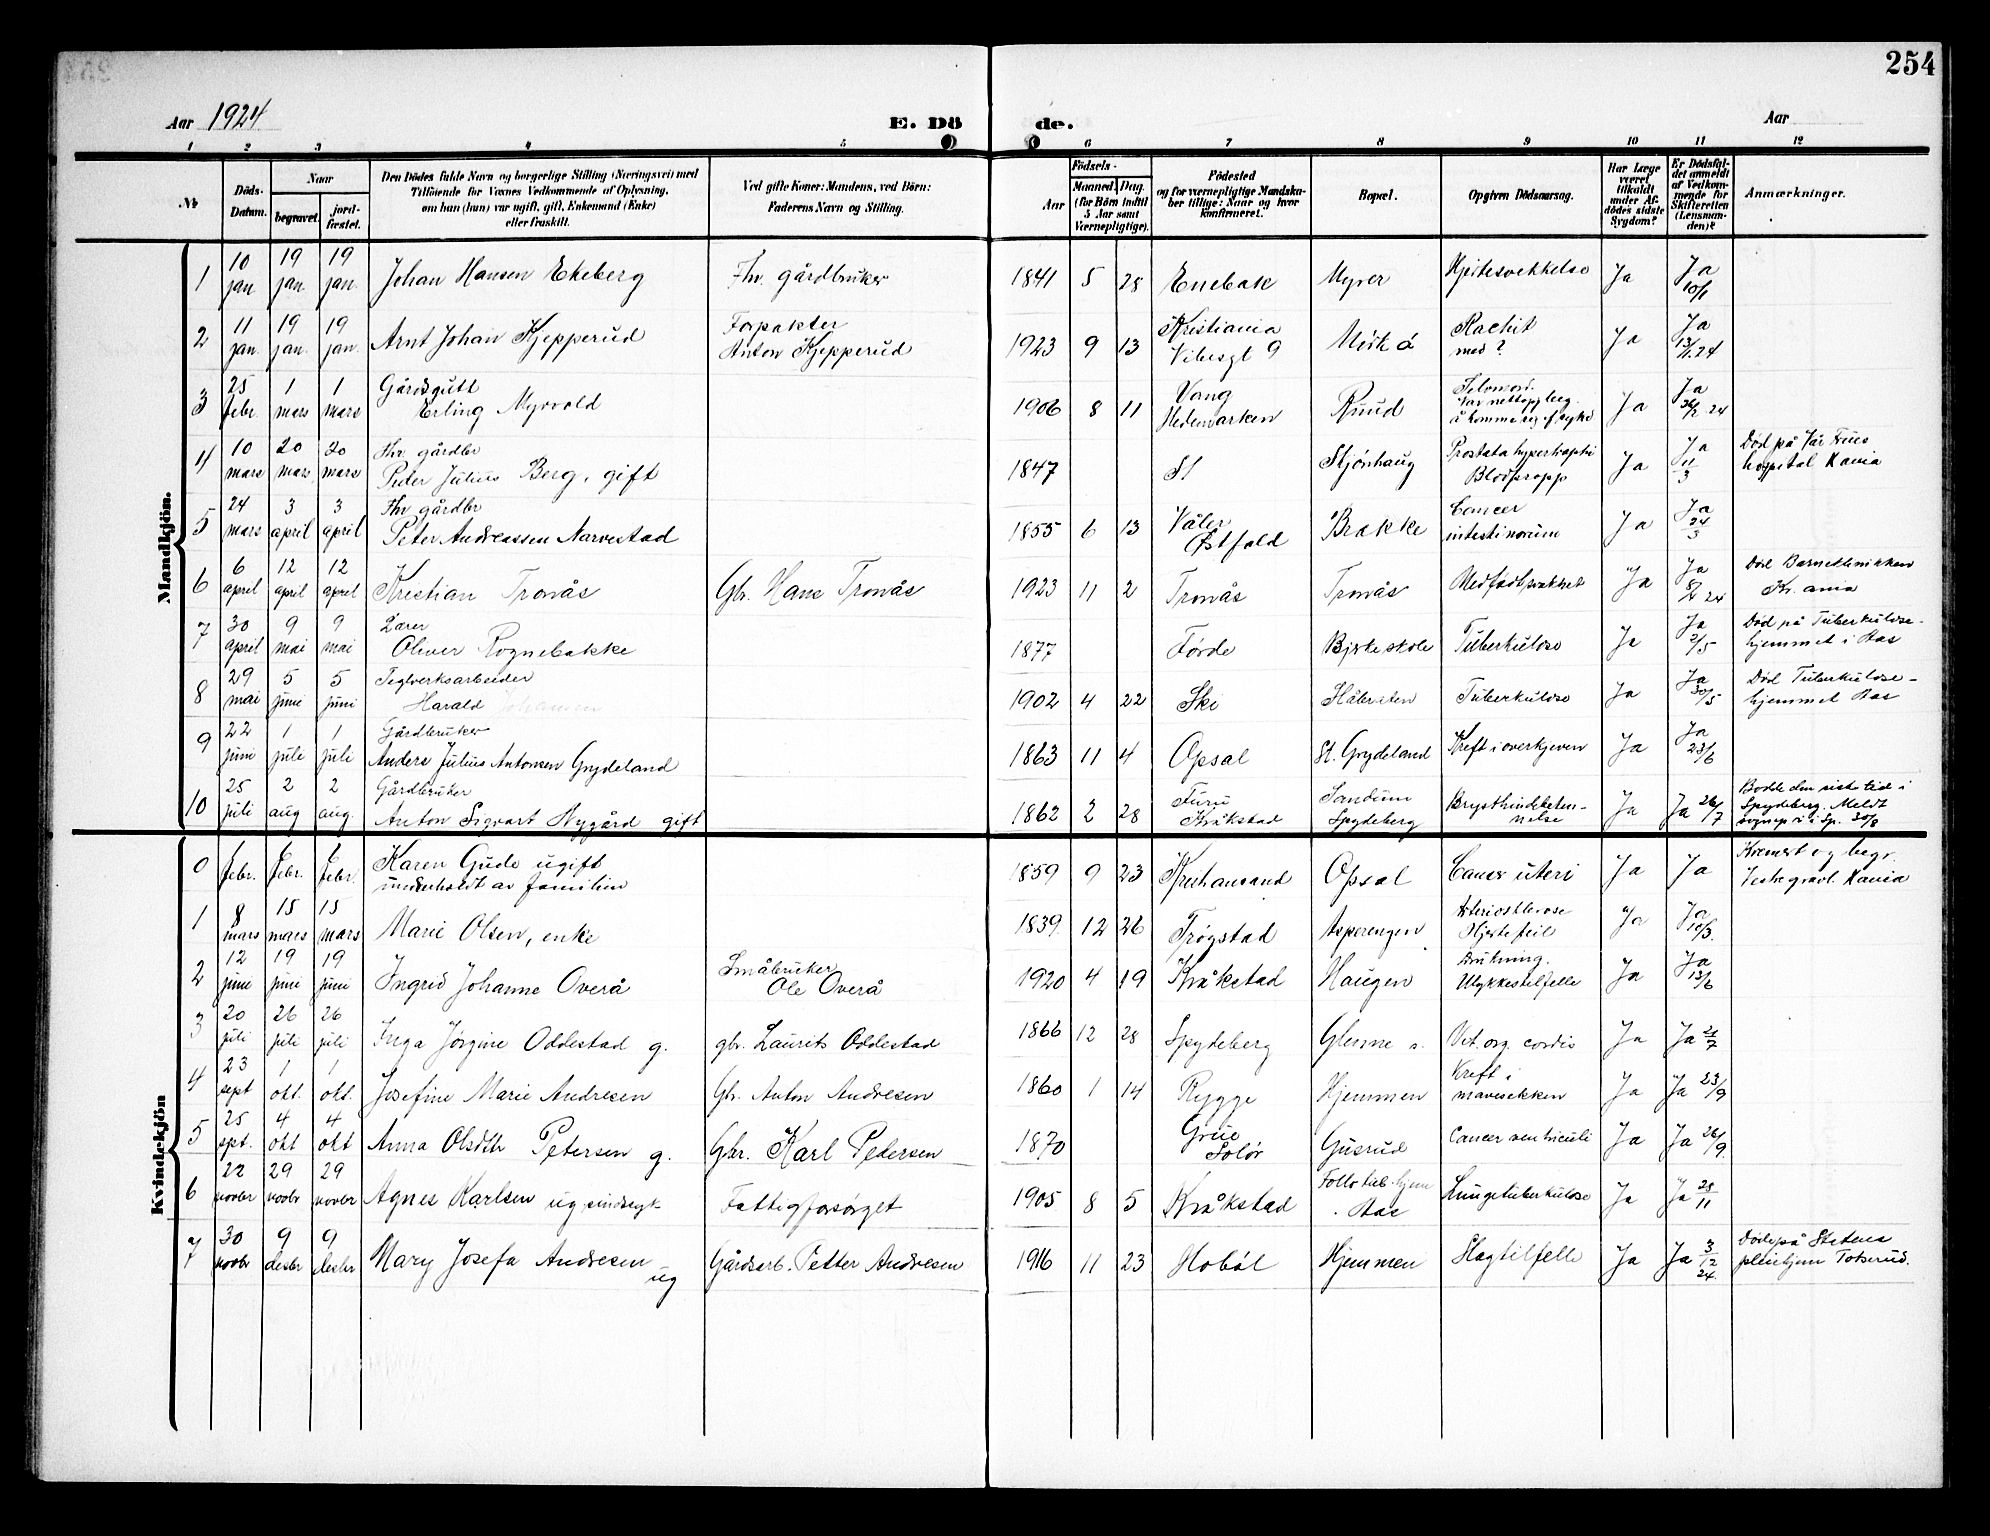 254
Aar 1924
E. Dö de.
Aar
1 2 3 4 5 6 7 8 9 10 11 12
№
Döds-Datum.
Naar
begravet.
jord-fæstet.
Den Dödes fulde Navn og borgerlige Stilling (Næringsvei) med
Tilföiende for Vexnes Vedkommende af Oplysning,
om han (hun) var ugift, gift, Enkemand (Enke)
eller fraskilt.
Ved gifte Koner: Mandens, ved Börn:
Faderens Navn og Stilling.
Födsels-
Aar
Maaned. Dag.
(for Börn indtil
5 Aar samt
Værnepligtige).
Födested
og for værnepligtige Mandska-
ber tillige: Naar og hvor
konfirmeret.
Bopæl.
Opgiven Dödsaarsag.
Har Læge
været
tilkaldt
under Af-
dödes sidste
Sygdom?
Er Dödsfal-
det anmeldt
af Vedkom-
mende for
Skifteretten
(Lensman-
den)?
Anmærkninger.
Mandkjön.
1 10 jan 19 jan. 19 jan. Johan Hansen Ekeberg Fhv. gårdbruker 1841 5 28 Enebak Myrer Hjertesvekkelse Ja Ja 10/1
2 11 jan. 19 jan. 19 jan. Arnt Johan Kjepperud Forpakter Anton Kjepperud 1923 9 13 Kristiania Vibesgt 9 Mörk Rachit med? Ja Ja 13/1 24
3 25 febr. 1 mars 1 mars Gårdsgutt Erling Myrvold 1906 8 11 Vang Hedemarken Ruud Selvmord. Var nettop beg. å komme sig f. syke Ja Ja 24
4 10 mars 20 mars 20 mars Fhv gårdbr Peder Julius Berg, gift 1847 Sl Skjönhaug Prostatahypertrophi Blodpropp Ja Ja 11/3 Död på Vår Frues hospital Kania
5 24 mars 3 april 3 april Fhv gårdbr Peter Andreassen Narvestad 1855 6 13 Våler Østfold Brakke Cancer intestinorum Ja Ja 24/3
6 6 april 12 april 12 april Kristian Tronås Gbr. Hans Tronås 1923 11 2 Tronås Tronås Medfødt svakhet Ja Ja 8/4 24 Död Barneklinikken Kr.ania
7 30 april 9 mai 9 mai Lærer Oliver Rognebakke 1877 Förde Bjerkeskole Tuberkulose Ja Ja 2/5 Död på Tuberkulose-hjemmet i Aas
8 29 mai 5 juni 5 juni Teglverksarbeider Harald Johansen 1902 4 22 Ski Tuberkulose Ja Ja 30/5 Död Tuberkulose-hjemmet Aas
9 22 juni 1 juli 1 juli Gårdbruker Anders Julius Antonsen Grydeland 1863 11 4 Opsal St. Grydeland Kreft i overkjeven Ja Ja 23/6
10 25 juli 2 aug 2 aug. Gårdbruker Anton Sigvart Nygård gift 1862 2 28 Furu Kråkstad Sandum Spydeberg Brysthindebeten-nelse Ja Ja 26/7 Bodde den siste tid i Spydeberg. Meldt sognepr i Sp. 30/8
Kvindekjön
0 febr. febr. febr. Karen Gude ugift underholdt av familien 1859 9 23 Kristiansand Opsal Cancer uteri Ja Ja Kremert og begr. Vestre gravl. Kania
1 8 mars 15 mars 15 mars Marie Olsen, enke 1839 12 26 Trögstad Asperengen Arteriosklerose Hjertefeil Ja Ja 10/3.
2 12 juni 19 juni 19 juni Ingrid Johanne Överå Småbruker Ole Överå 1920 4 19 Kråkstad Haugen Drukning. Ulykkestilfelle Ja Ja 13/6
3 20 juli 26 juli 26 juli Inga Jörgine Oddestad g. gbr. Laurits Oddestad 1866 12 28 Spydeberg Glenne Vit. org. cordis Ja Ja 21/7
4 23 sept 1 okt. 1 okt. Josefine Marie Andresen Gbr. Anton Andresen 1860 1 14 Rygge Hjemmen Kreft i mavesekken Ja Ja 23/9
5 25 spt. 4 okt 4 okt Anna Olsdtr Petersen g. Gbr. Karl Pedersen 1870 Grue Solör Gusrud Cancer ventriculi Ja Ja 26/9.
6 22 novbr 29 novbr 29 novbr Agnes Karlsen ug sindssyk Fattigforsörget 1905 8 5 Kråkstad Follo tub.hjem Aas Lungetuberkulose Ja Ja 28/11
7 30 novbr 9 desbr 9 desbr Mary Josefa Andresen ug Gårdsarb. Petter Andresen 1916 11 23 Hoböl Hjemmen Slagtilfelle Ja Ja 3/12 24. Döde på Stetens pleiehjem Tokerud.